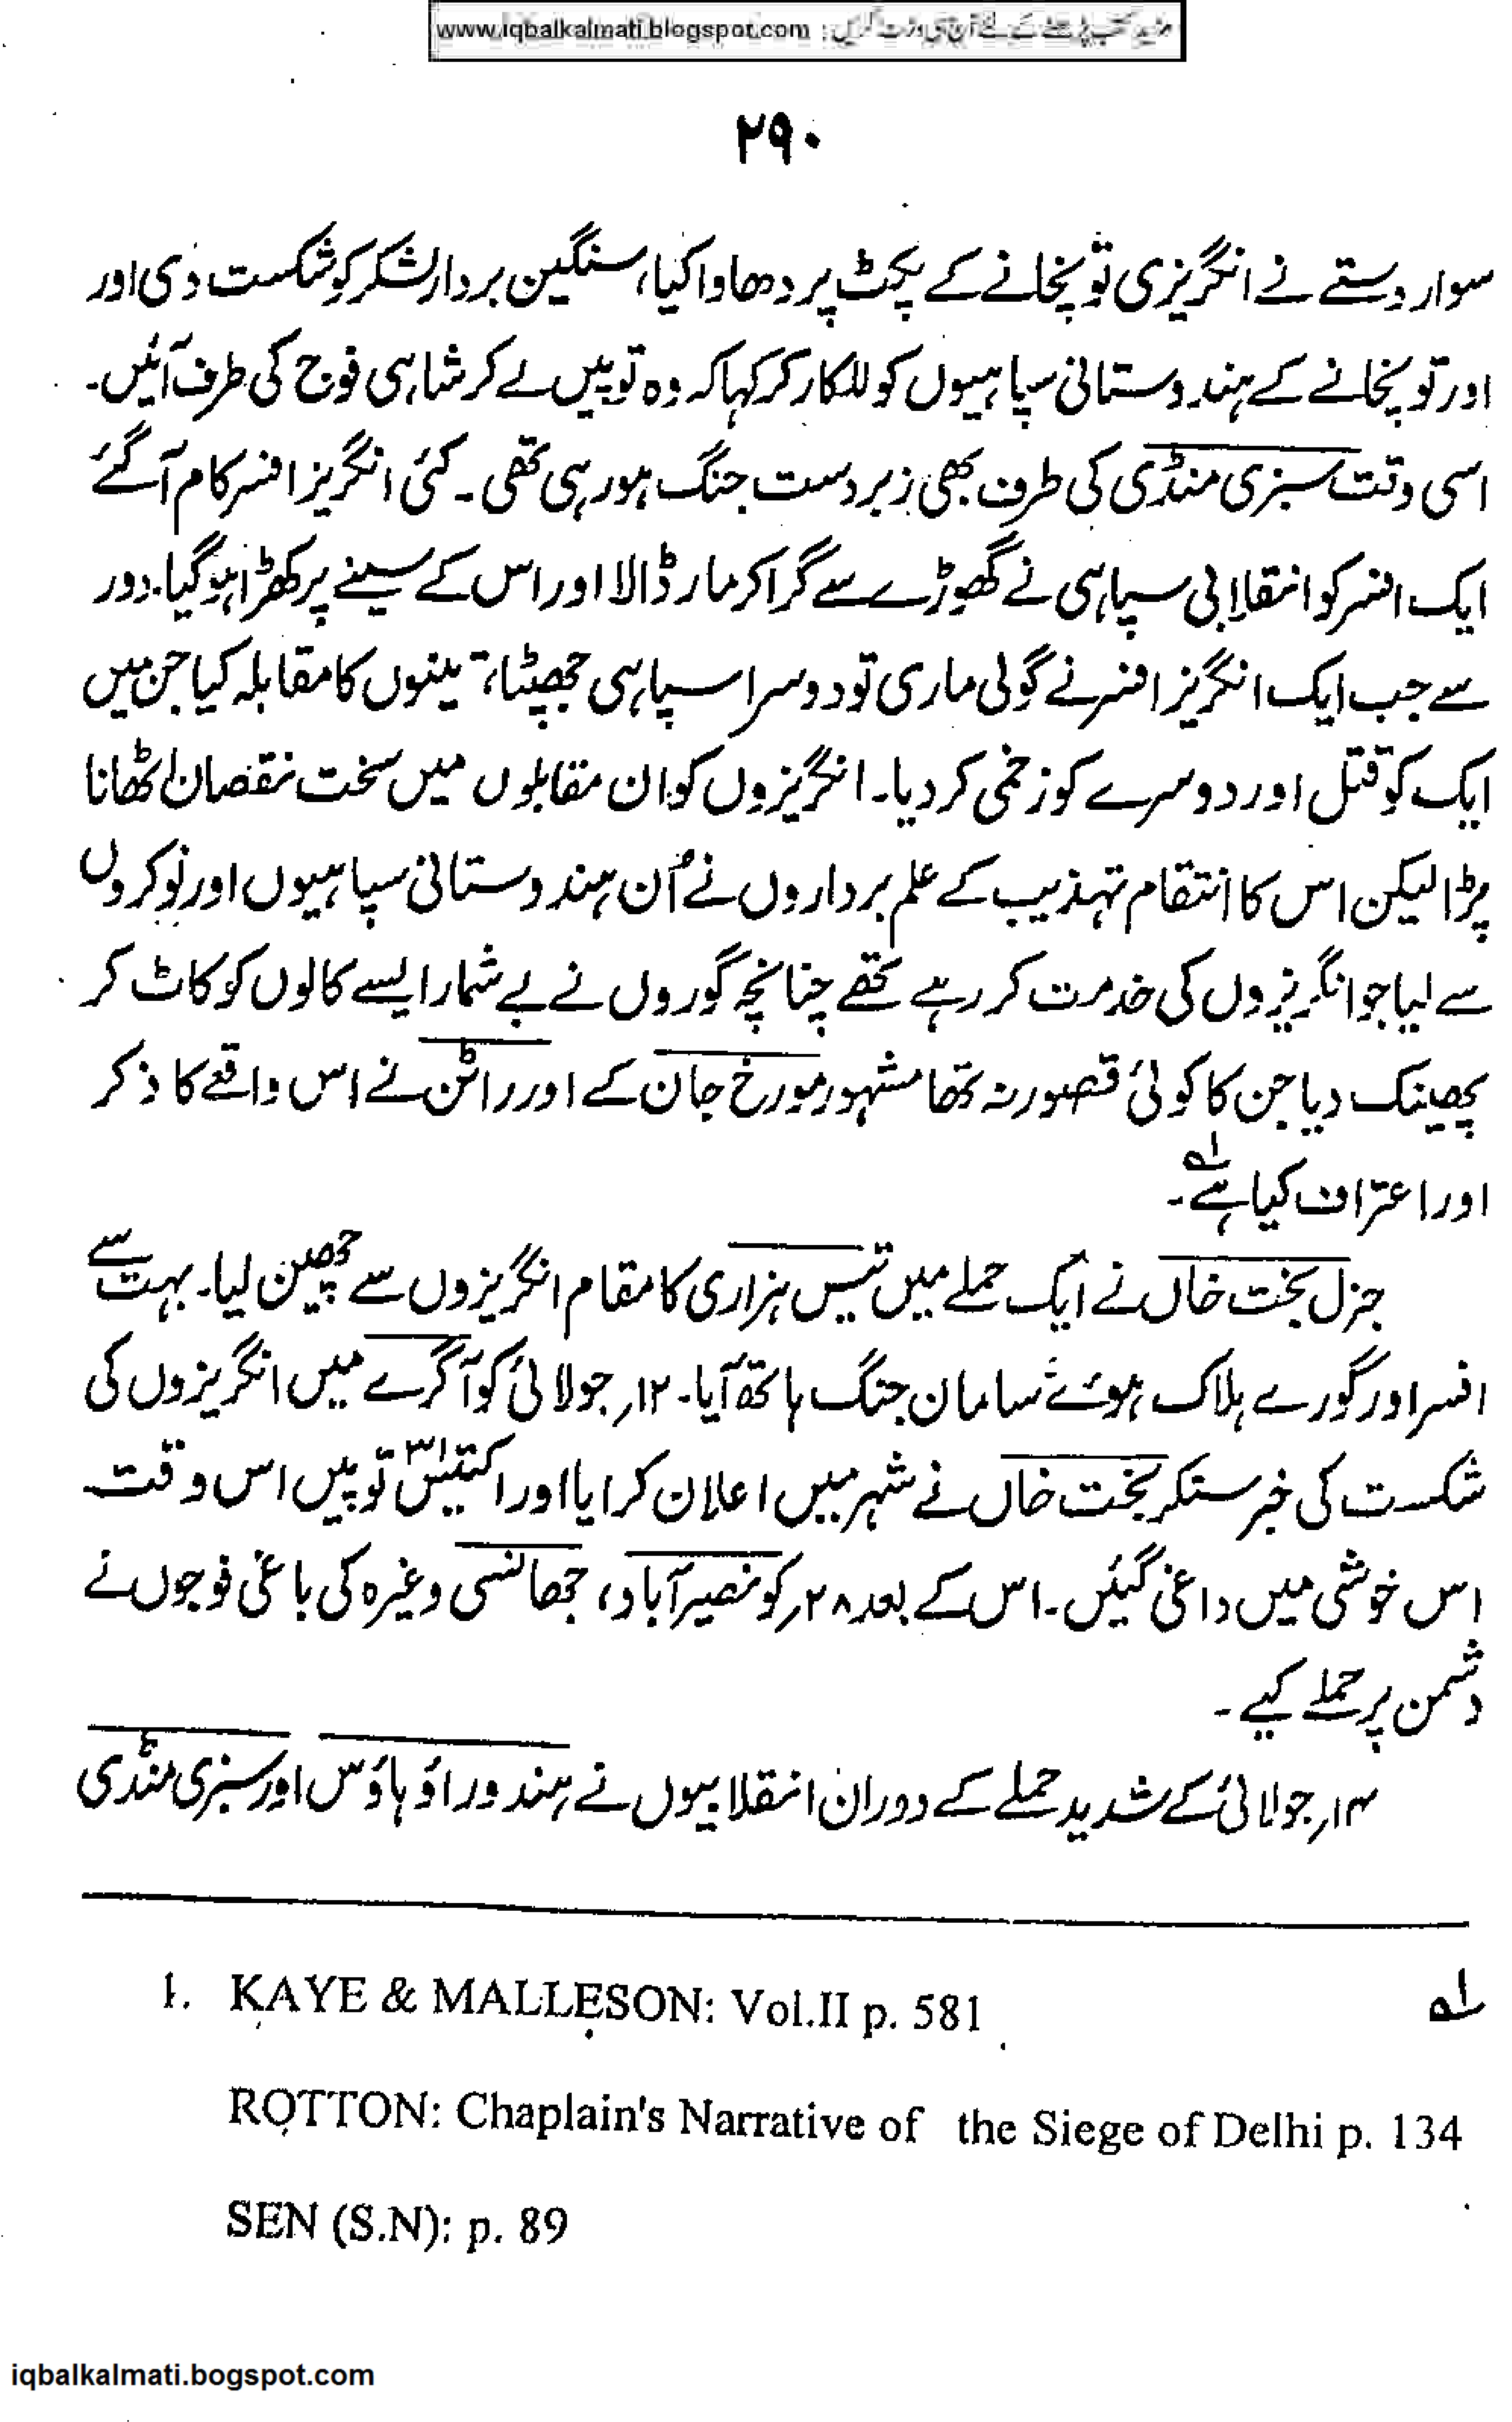 www.iqbalkalmati.blogspot.com : مزید کتب پڑھنے کے لئے آج ہی وزٹ کریں
۲۹۰
سوار دستے نے انگریزی توپخانے کے پکٹ پر دھاوا کیا، سنگین بردار لشکر کو شکست دی اور
اور توپخانے کے ہندوستانی سپاہیوں کو للکار کر کہا کہ وہ توپیں لے کر شاہی فوج کی طرف آئیں۔
اسی وقت سبزی منڈی کی طرف بھی زبردست جنگ ہو رہی تھی۔ کئی انگریز افسر کام آگئے
ایک افسر کو انقلابی سپاہی نے گھوڑے سے گرا کر مار ڈالا اور اس کے سینے پر کھڑا ہو گیا۔ دور
سے جب ایک انگریز افسر نے گولی ماری تو دوسرا سپاہی جھپٹا، تینوں کا مقابلہ کیا جن میں
ایک کو قتل اور دوسرے کو زخمی کر دیا۔ انگریزوں کو ان مقابلوں میں سخت نقصان اٹھانا
پڑا لیکن اس کا انتقام تہذیب کے علم برداروں نے اُن ہندوستانی سپاہیوں اور نوکروں
سے لیا جو انگریزوں کی خدمت کر رہے تھے چنانچہ گوروں نے بے شمار ایسے کالوں کو کاٹ کر
پھینک دیا جن کا کوئی قصور نہ تھا مشہور مورخ جان کے اور راٹن نے اس واقعے کا ذکر
اور اعتراف کیا ہے۔ لہ
جنرل بخت خاں نے ایک حملے میں تیس ہزاری کا مقام انگریزوں سے چھین لیا۔ بہت سے
افسر اور گورے ہلاک ہوئے سامان جنگ ہاتھ آیا۔ ۱۲؍ جولائی کو آگرے میں انگریزوں کی
شکست کی خبر سنکر بخت خاں نے شہر میں اعلان کرایا اور اکتیس۳۱ توپیں اس وقت
اس خوشی میں داغی گئیں۔ اس کے بعد ۲۸؍ کو نصیرآباد، جھانسی وغیرہ کی باغی فوجوں نے
دشمن پر حملے کیے۔
۱۴؍ جولائی کے شدید حملے کے دوران انقلابیوں نے ہندوراؤ ہاؤس اور سبزی منڈی
لہ 1. KAYE & MALLESON: Vol.II p. 581
ROTTON: Chaplain's Narrative of the Siege of Delhi p. 134
SEN (S.N): p. 89
iqbalkalmati.bogspot.com